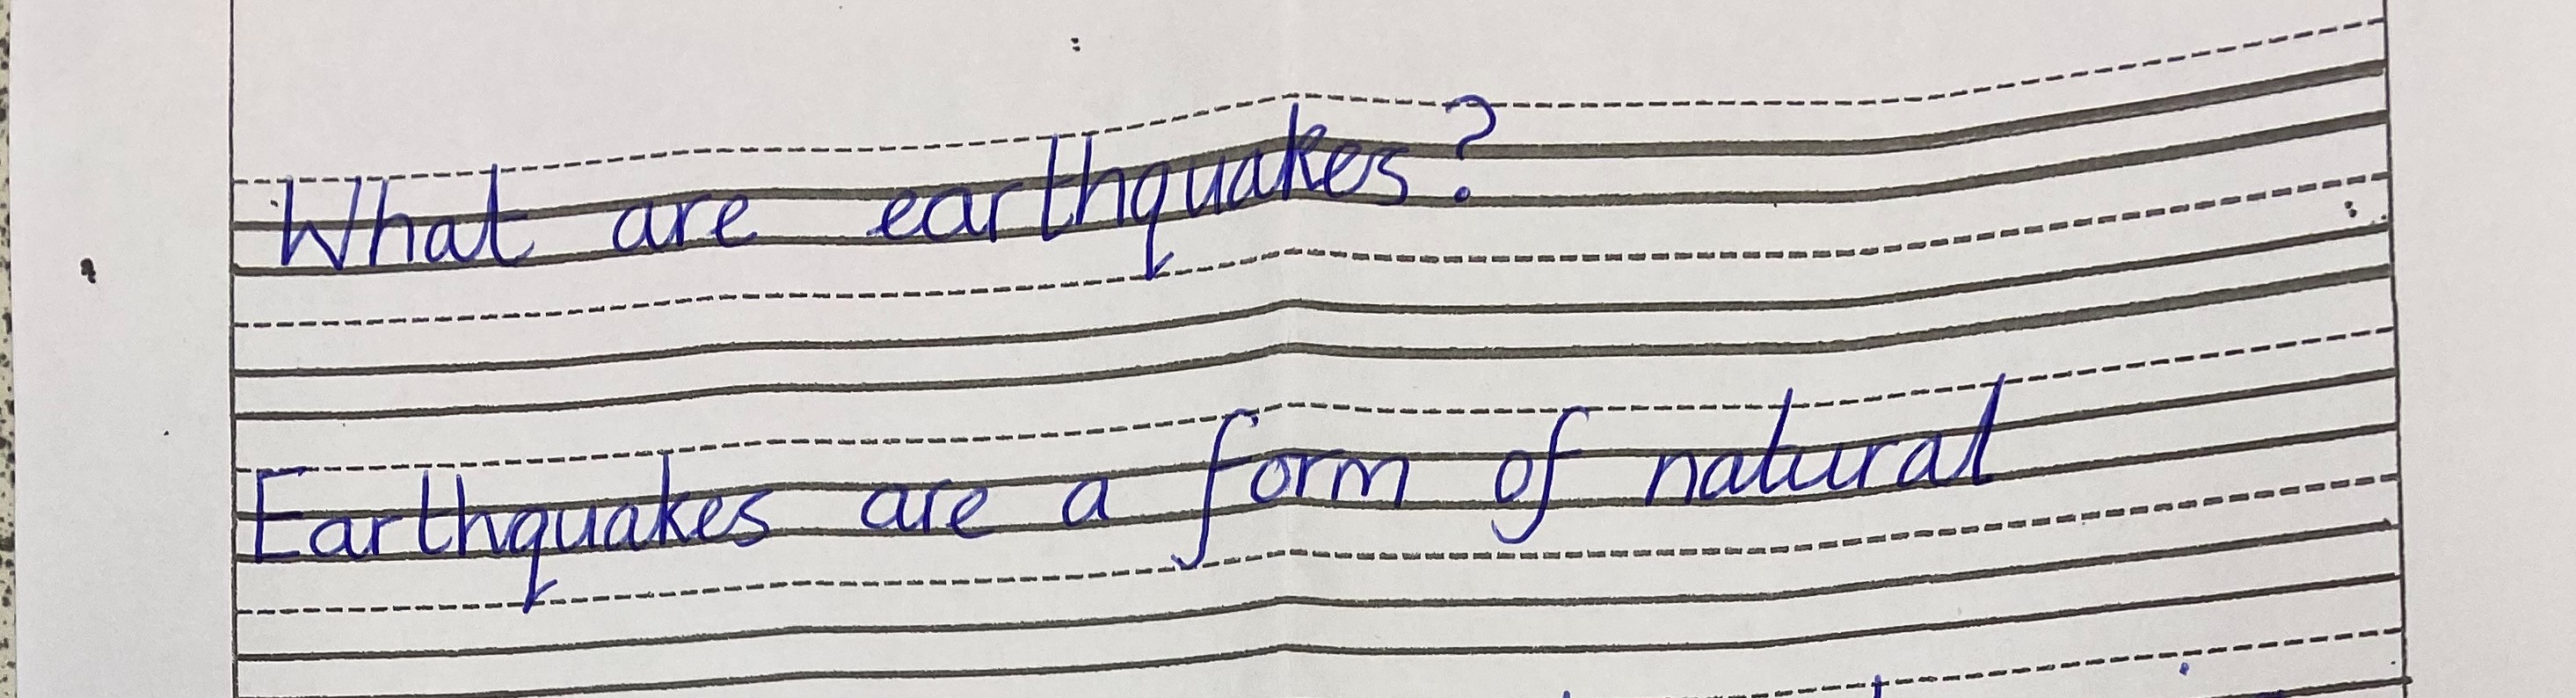 What are earthquakes?
Earthquakes are a form of natural